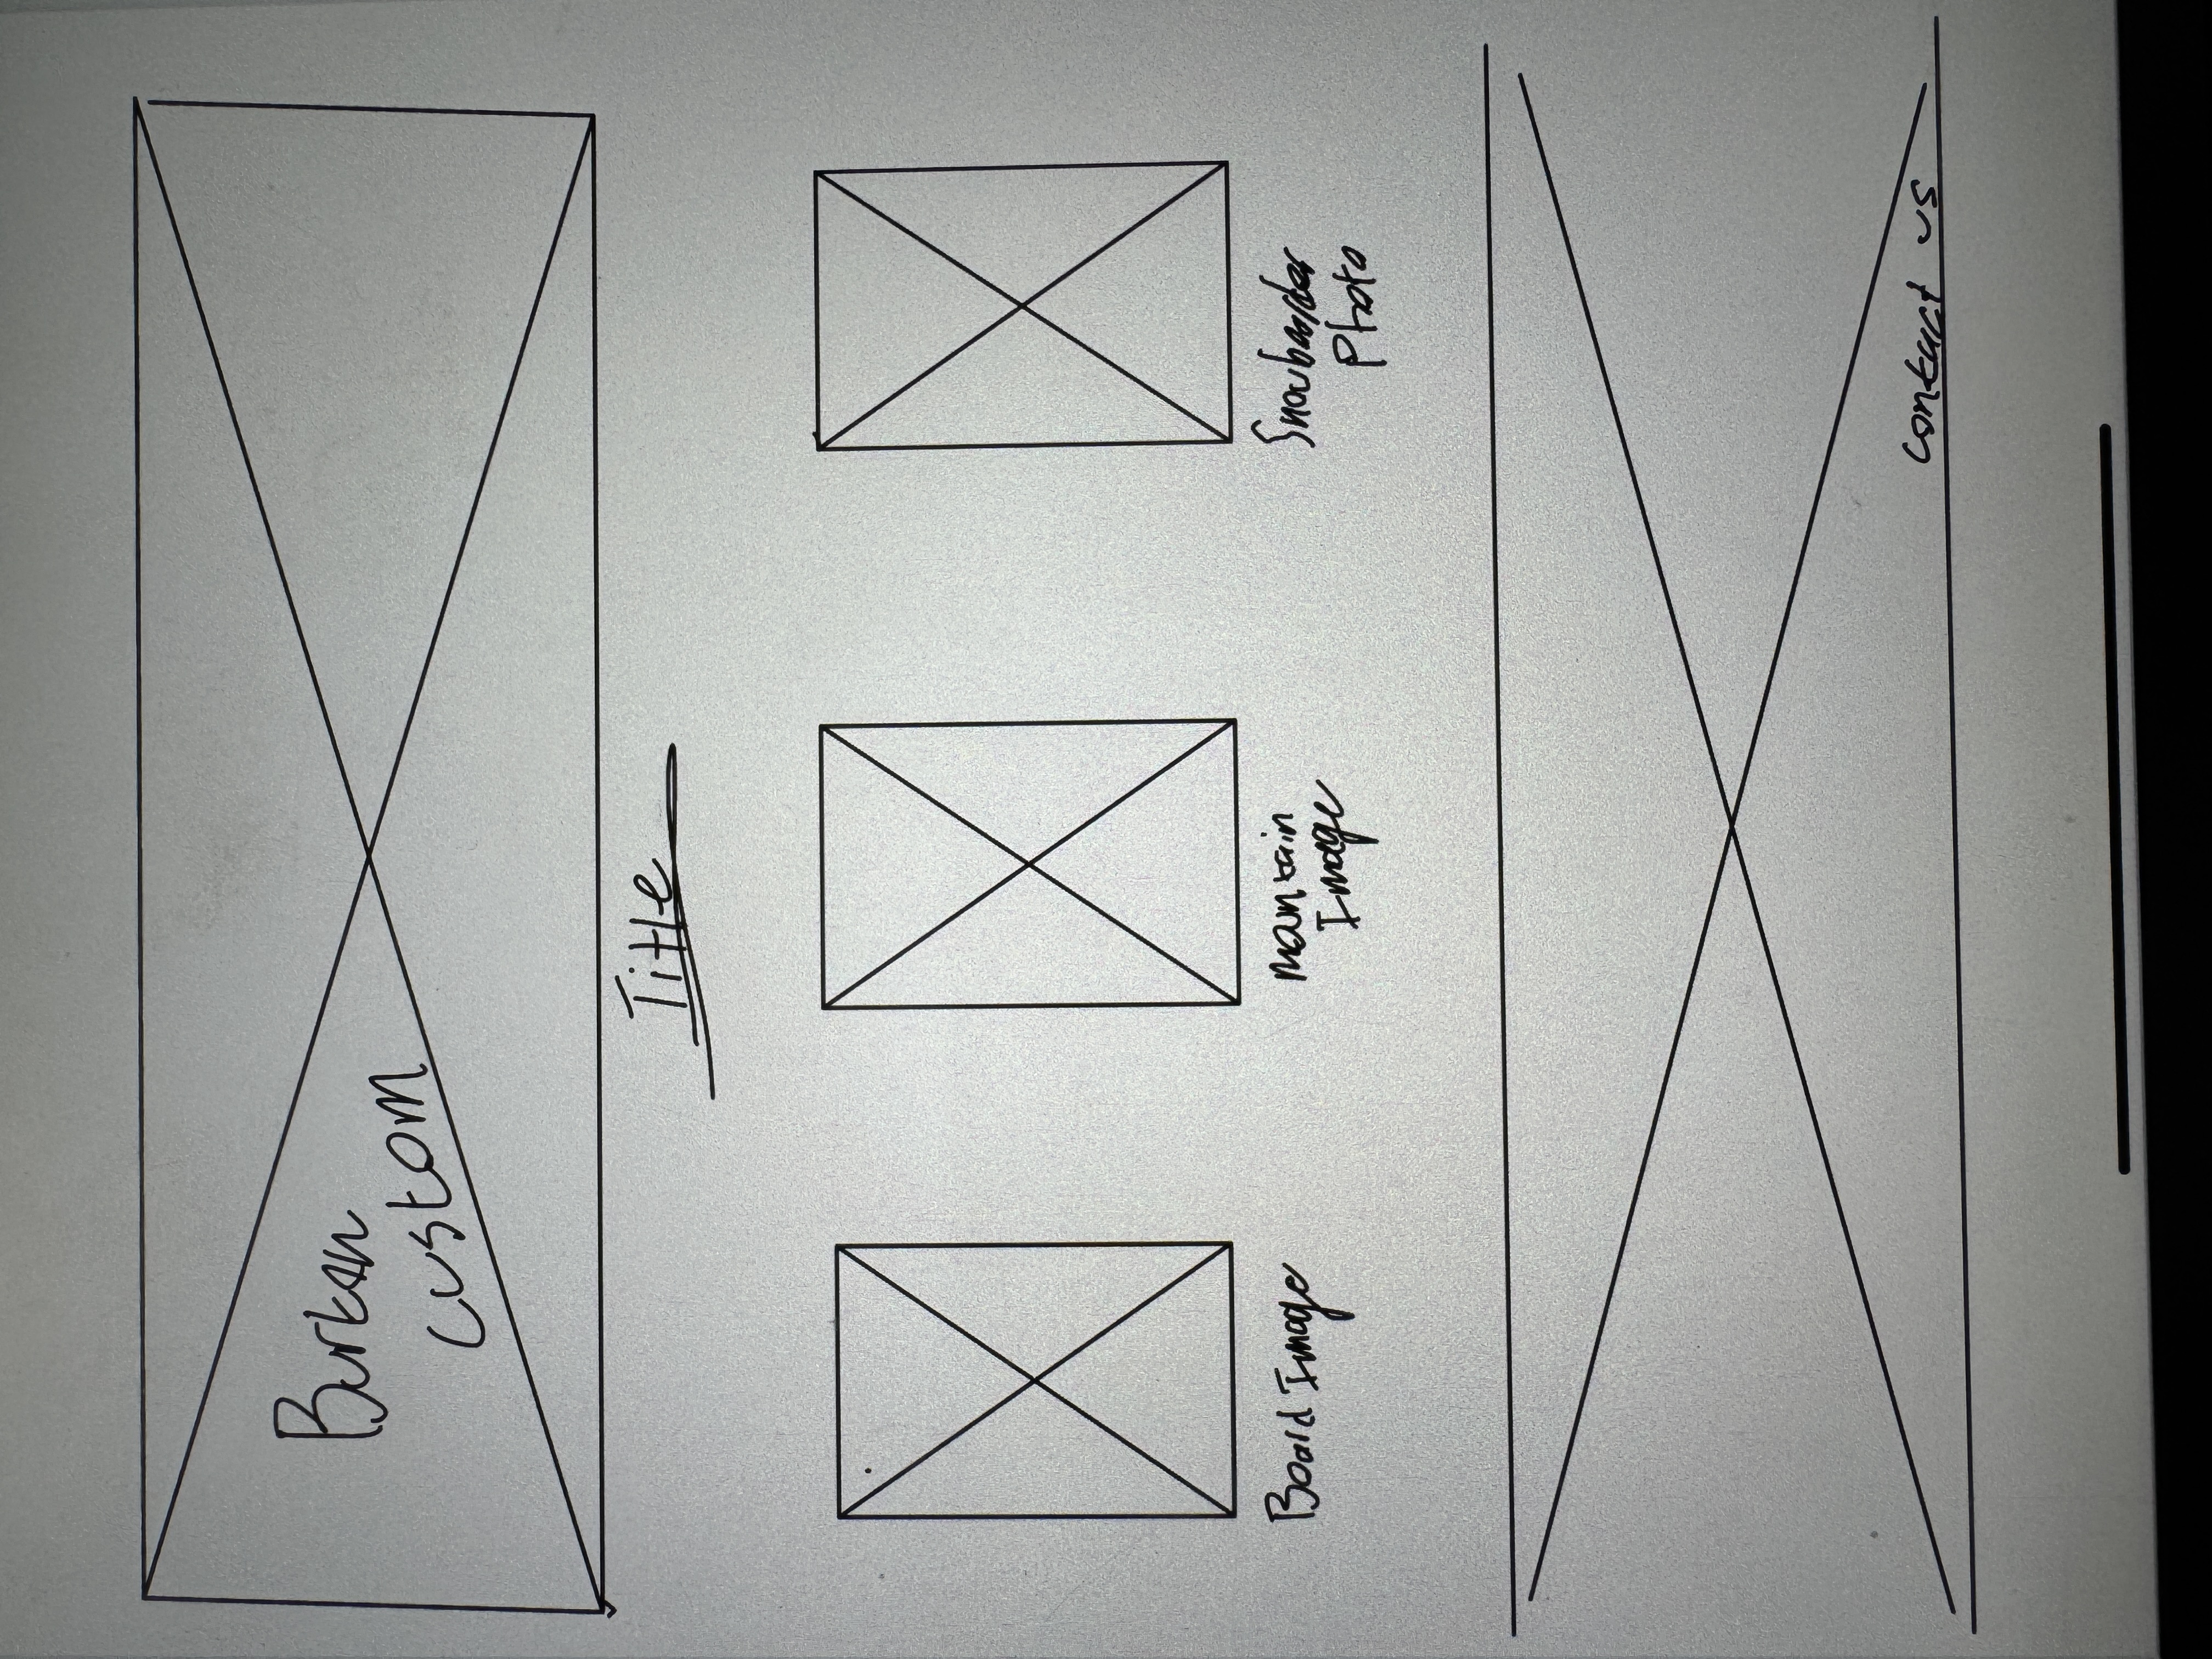 Burton
custom
Title
Board Image
mountain
Image
Snowboarder
Photo
contact us